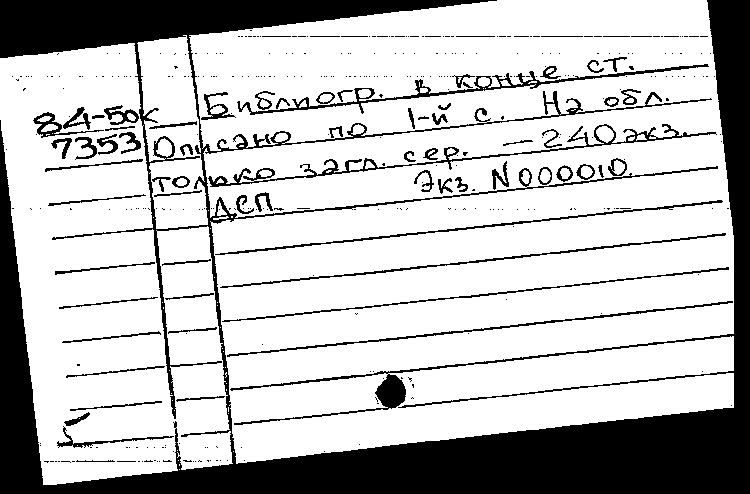 84-50к Библиогр. в конце ст.
7353 Описано по 1-й с. На обл.
только загл. сер. — 240 экз.
ДСП Экз. N000010.
5